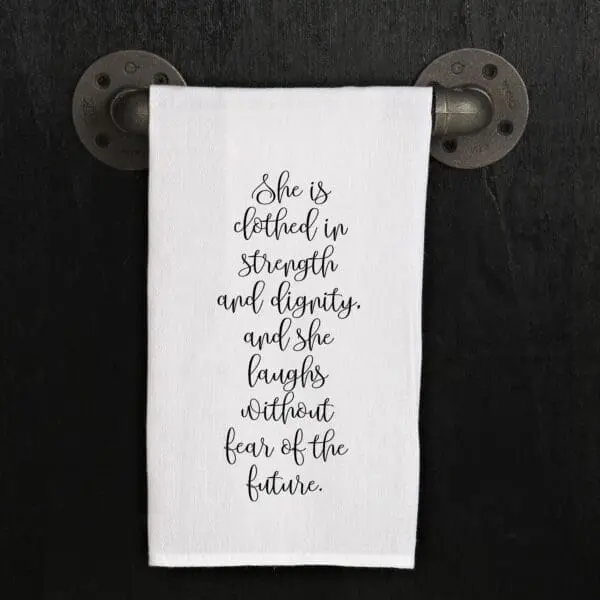 She is
clothed in
strength
and dignity,
and she
laughs
without
fear of the
future.